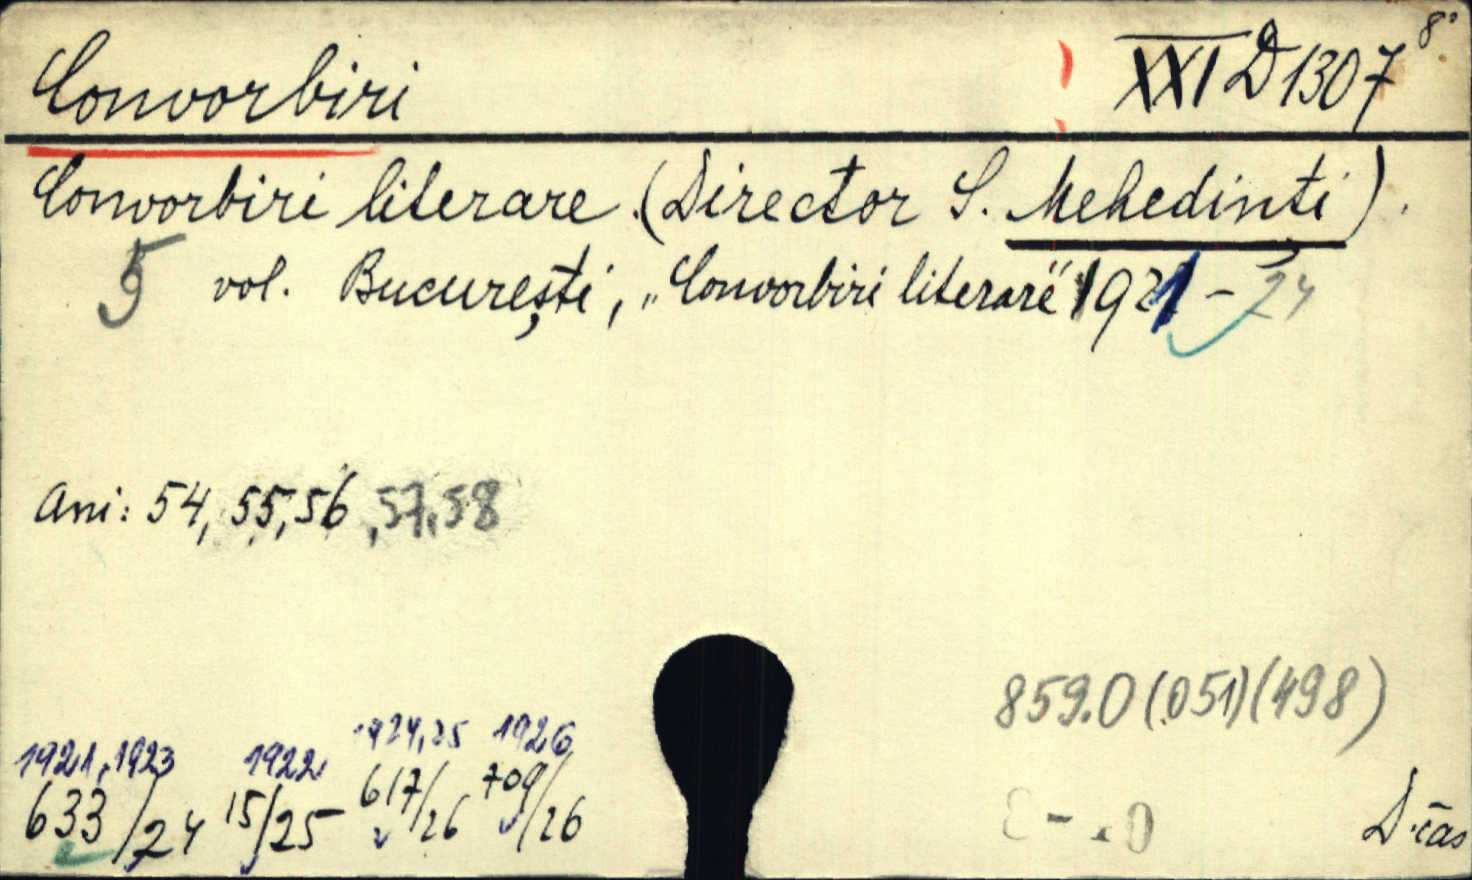 Convorbiri XXI D 1307 8°
Convorbiri literare. (Director S. Mehedinti).
5 vol. București, „Convorbiri literare" 1921-24
Ani: 54, 55, 56, 57, 58
859.0(051)(498)
1921, 1923 1922 1924, 25 1926
633/24 15/25 617/26 709/26
D čas